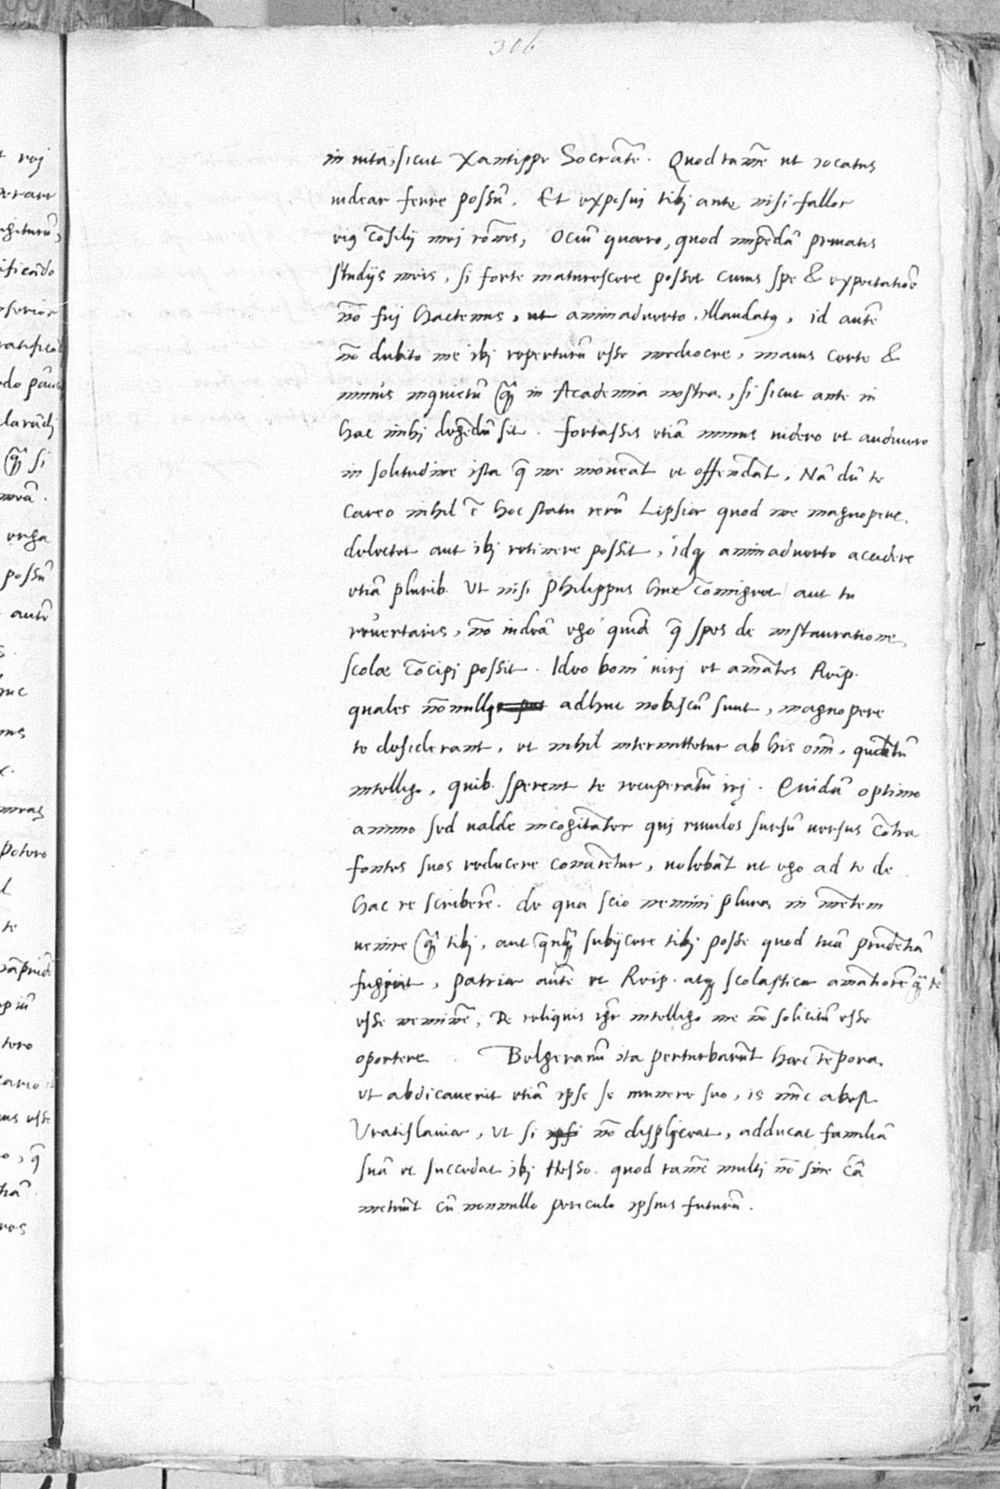 306
in uita, sicut Xantippe Socratē. Quod tamē ut iocatus
uidear ferre possū. Et exposui tibi ante nisi fallor
cōsilij mei rōnes, Ociū quaero, quod impēdā priuatis
studijs meis, si forte maturescere posset cuius spe & expectatiōe
nō fui hactenus, ut animaduerto, id autē
nō dubito me ibi reperturū esse mediocre, maius certe &
minus inquietū q̄ in Academia nostra, si sicut ante in
hac mihi degēdū sit. fortassis etiā minus uidero et audiuero
in solitudine ista q̄ me moueāt et offendāt, Nā dū te
careo nihil ē hoc statu rerū Lipsiae quod me magnopere
delectet aut ibi retinere possit, idq animaduerto accidere
etiā plurib. Ut nisi Philippus huc cōmigret aut tu
reuertaris, nō uideā ego quidē q̄ spes de instauratione
scolae cōcipi possit. Ideo boni uiri et amātes Reip.
quales nōnulli adhuc nobiscū sunt, magnopere
te desiderant, et nihil intermittetur ab his oīm, quātū
intelligo, quib. sperent te recuperatū iri. Quidā optimo
animo sed ualde incogitāter qui riuulos sursū uersus cōtra
fontes suos reducere conarētur, uolebāt ut ego ad te de
hac re scriberē. de qua scio nemini plura in mētem
uenire q̄ tibi, aut subijcere tibi posse quod tuā prudētiā
fugiat, patriae autē et Reip. atq scolastica amātiorē q̄ te
esse neminē, De reliquis intelligo me nō solicitū esse
oportere. Bolgeranū ita perturbarūt haec tēpora
ut abdicauerit etiā ipse se munere suo, is nūc abest
Vratislauiae, ut si nō displiceat, adducat familiā
suā et succedat ibi Hesso. quod tamē multi nō sine cā
metuūt cū nonnullo periculo ipsius futurū.